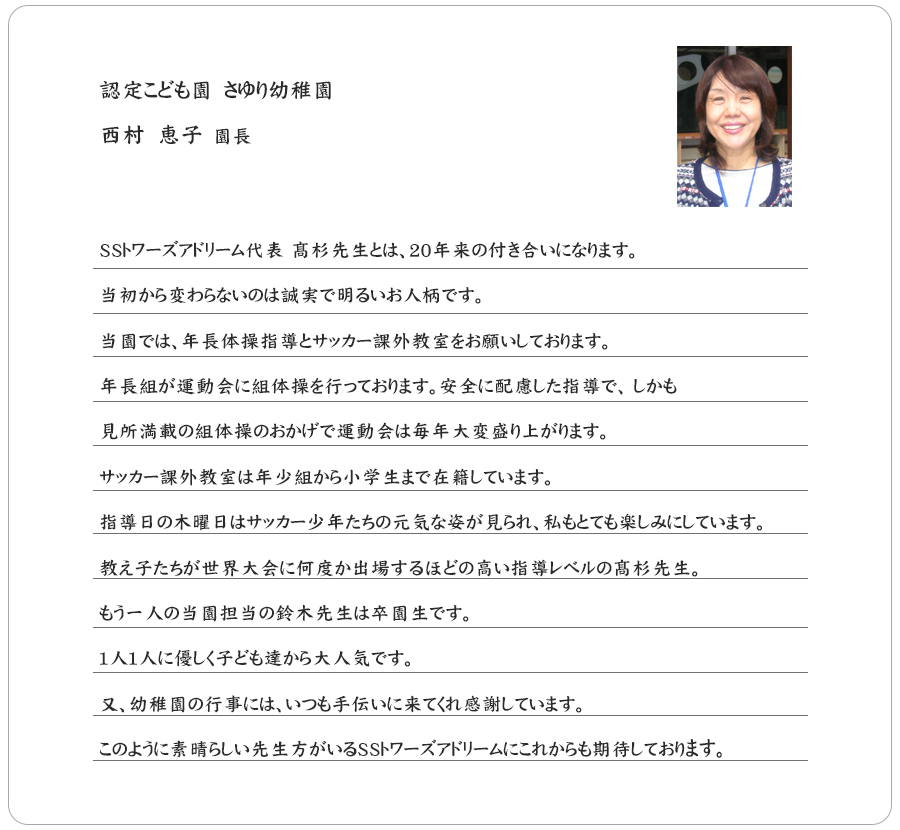 認定こども園 さゆり幼稚園
西村 恵子 園長
SSトワーズアドリーム代表 髙杉先生とは、20年来の付き合いになります。
当初から変わらないのは誠実で明るいお人柄です。
当園では、年長体操指導とサッカー課外教室をお願いしております。
年長組が運動会に組体操を行っております。安全に配慮した指導で、しかも
見所満載の組体操のおかげで運動会は毎年大変盛り上がります。
サッカー課外教室は年少組から小学生まで在籍しています。
指導日の木曜日はサッカー少年たちの元気な姿が見られ、私もとても楽しみにしています。
教え子たちが世界大会に何度か出場するほどの高い指導レベルの髙杉先生。
もう一人の当園担当の鈴木先生は卒園生です。
1人1人に優しく子ども達から大人気です。
又、幼稚園の行事には、いつも手伝いに来てくれ感謝しています。
このように素晴らしい先生方がいるSSトワーズアドリームにこれからも期待しております。